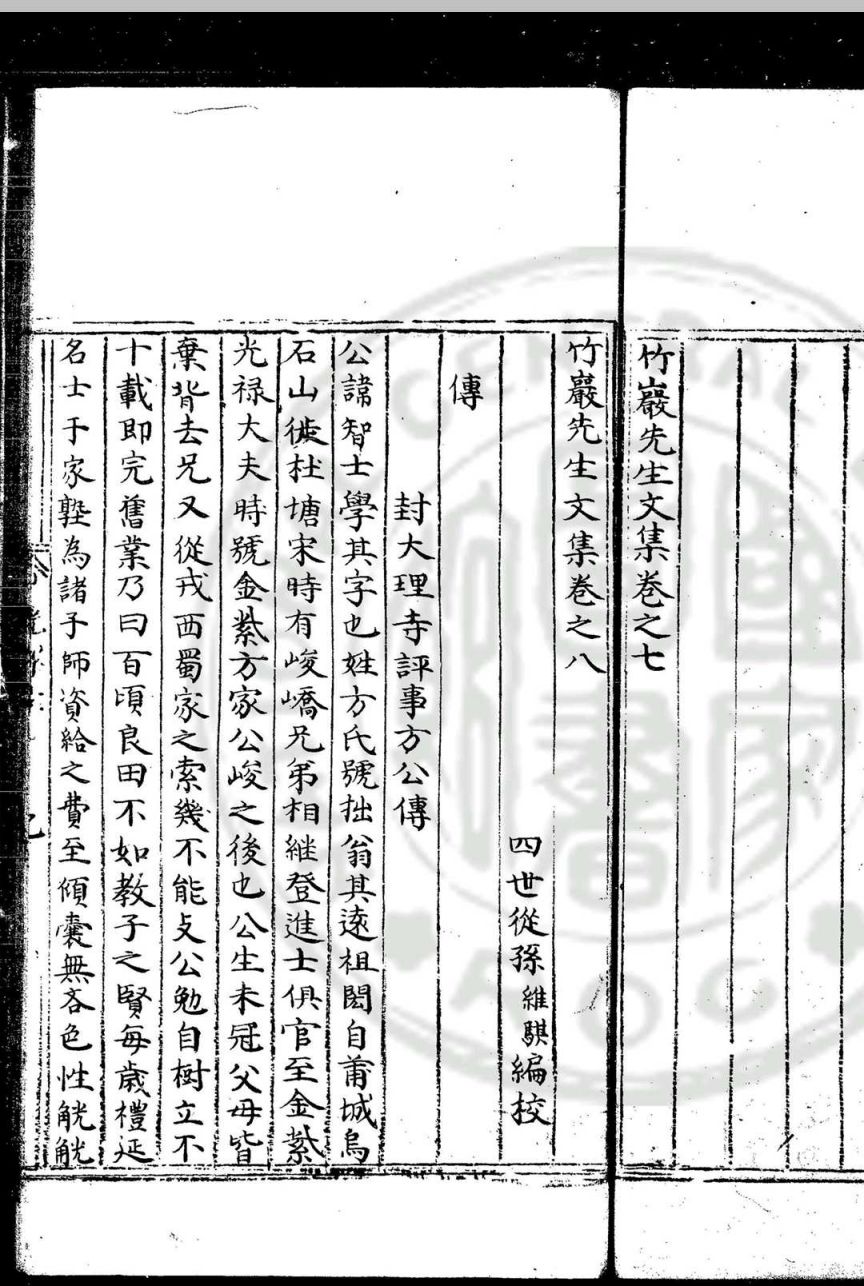 竹巖先生文集卷之七
竹巖先生文集卷之八
四世從孫維騏編校
傳
封大理寺評事方公傳
公諱智士學其字也姓方氏號拙翁其遠祖閎自莆城烏
石山徙杜塘宋時有峻嶠兄弟相繼登進士俱官至金紫
光禄大夫時號金紫方家公峻之後也公生未冠父母皆
棄背去兄又從戎西蜀家之索幾不能支公勉自樹立不
十載即完舊業乃曰百頃良田不如教子之賢每歲禮延
名士于家塾為諸子師資給之費至傾囊無吝色性觥觥